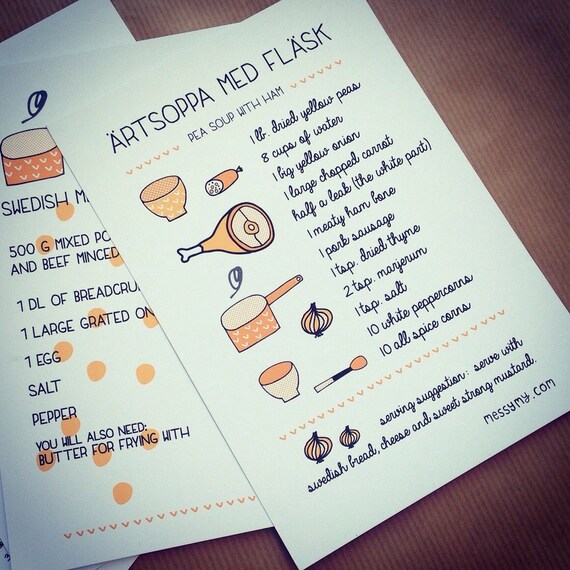 ÄRTSOPPA MED FLÄSK
PEA SOUP WITH HAM
1 lb. dried yellow peas
8 cups of water
1 big yellow onion
1 large chopped carrot
half a leak (the white part)
1 meaty ham bone
1 pork sausage
1 tsp. dried thyme
2 tsp. marjerum
1 tsp. salt
10 white peppercorns
10 all spice corns
serving suggestion: serve with
swedish bread, cheese and sweet strong mustard.
messymy.com
SWEDISH
500 G MIXED
AND BEEF MINCED
1 DL OF
1 LARGE GRATED
1 EGG
SALT
PEPPER
YOU WILL ALSO NEED:
BUTTER FOR FRYING WITH